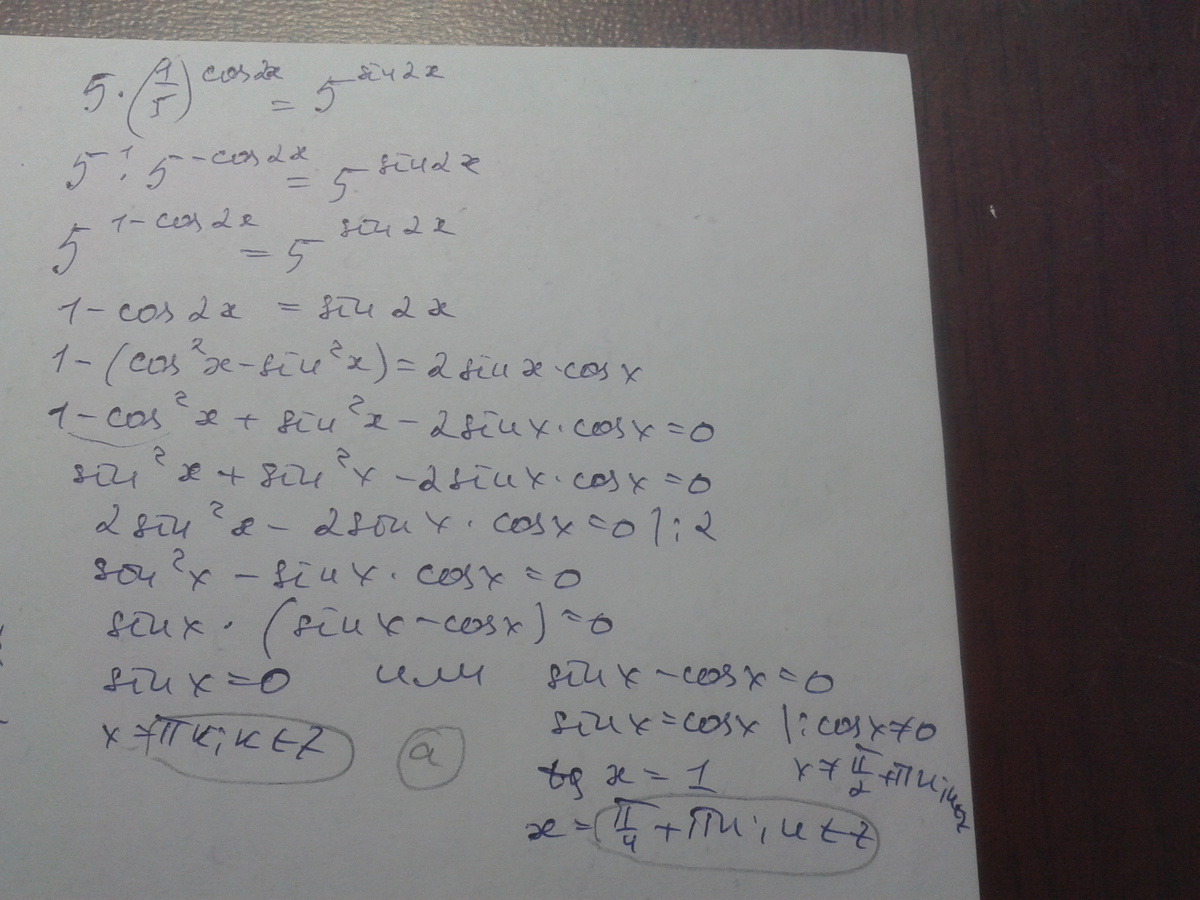 5·(1/5)^cos2x = 5^sin2x
5^1·5^-cos2x = 5^sin2x
5^1-cos2x = 5^sin2x
1-cos2x = sin2x
1-(cos²x-sin²x)=2sinx·cosx
1-cos²x+sin²x-2sinx·cosx=0
sin²x+sin²x-2sinx·cosx=0
2sin²x-2sinx·cosx=0 |:2
sin²x-sinx·cosx=0
sinx·(sinx-cosx)=0
sinx=0 или sinx-cosx=0
x=πk; k∈Z а sinx=cosx |:cosx≠0
tgx=1 x≠π/2+πn; n∈Z
x=π/4+πn; n∈Z